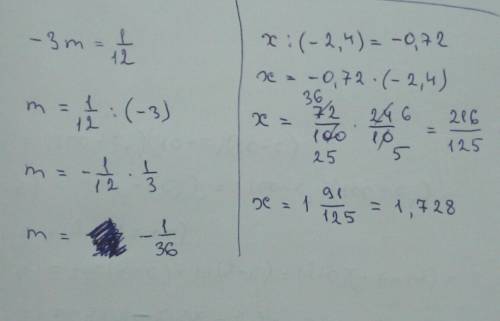 -3m = 1/12
m = 1/12 : (-3)
m = - 1/12 · 1/3
m = - 1/36
x : (-2,4) = -0,72
x = -0,72 · (-2,4)
36
x = 72/100 · 24/10 6 = 216/125
25 5
x = 1 91/125 = 1,728